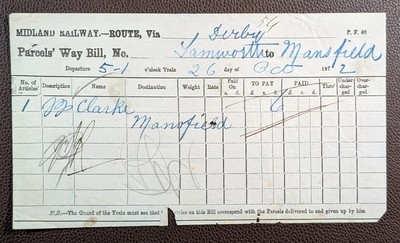 MIDLAND RAILWAY.—ROUTE, Via Derby P. F. 46
Parcels' Way Bill, No. Tamworth to Mansfield
Departure 5-1 o'clock Train 26 day of Oct 1872
No. of Articles Description Name Destination Weight Rate Paid On TO PAY PAID Thro' Under charged Over-charged
1 Clarke 6
Mansfield
N.B.—The Guard of the Train must see that on this Bill correspond with the Parcels delivered to and given up by him